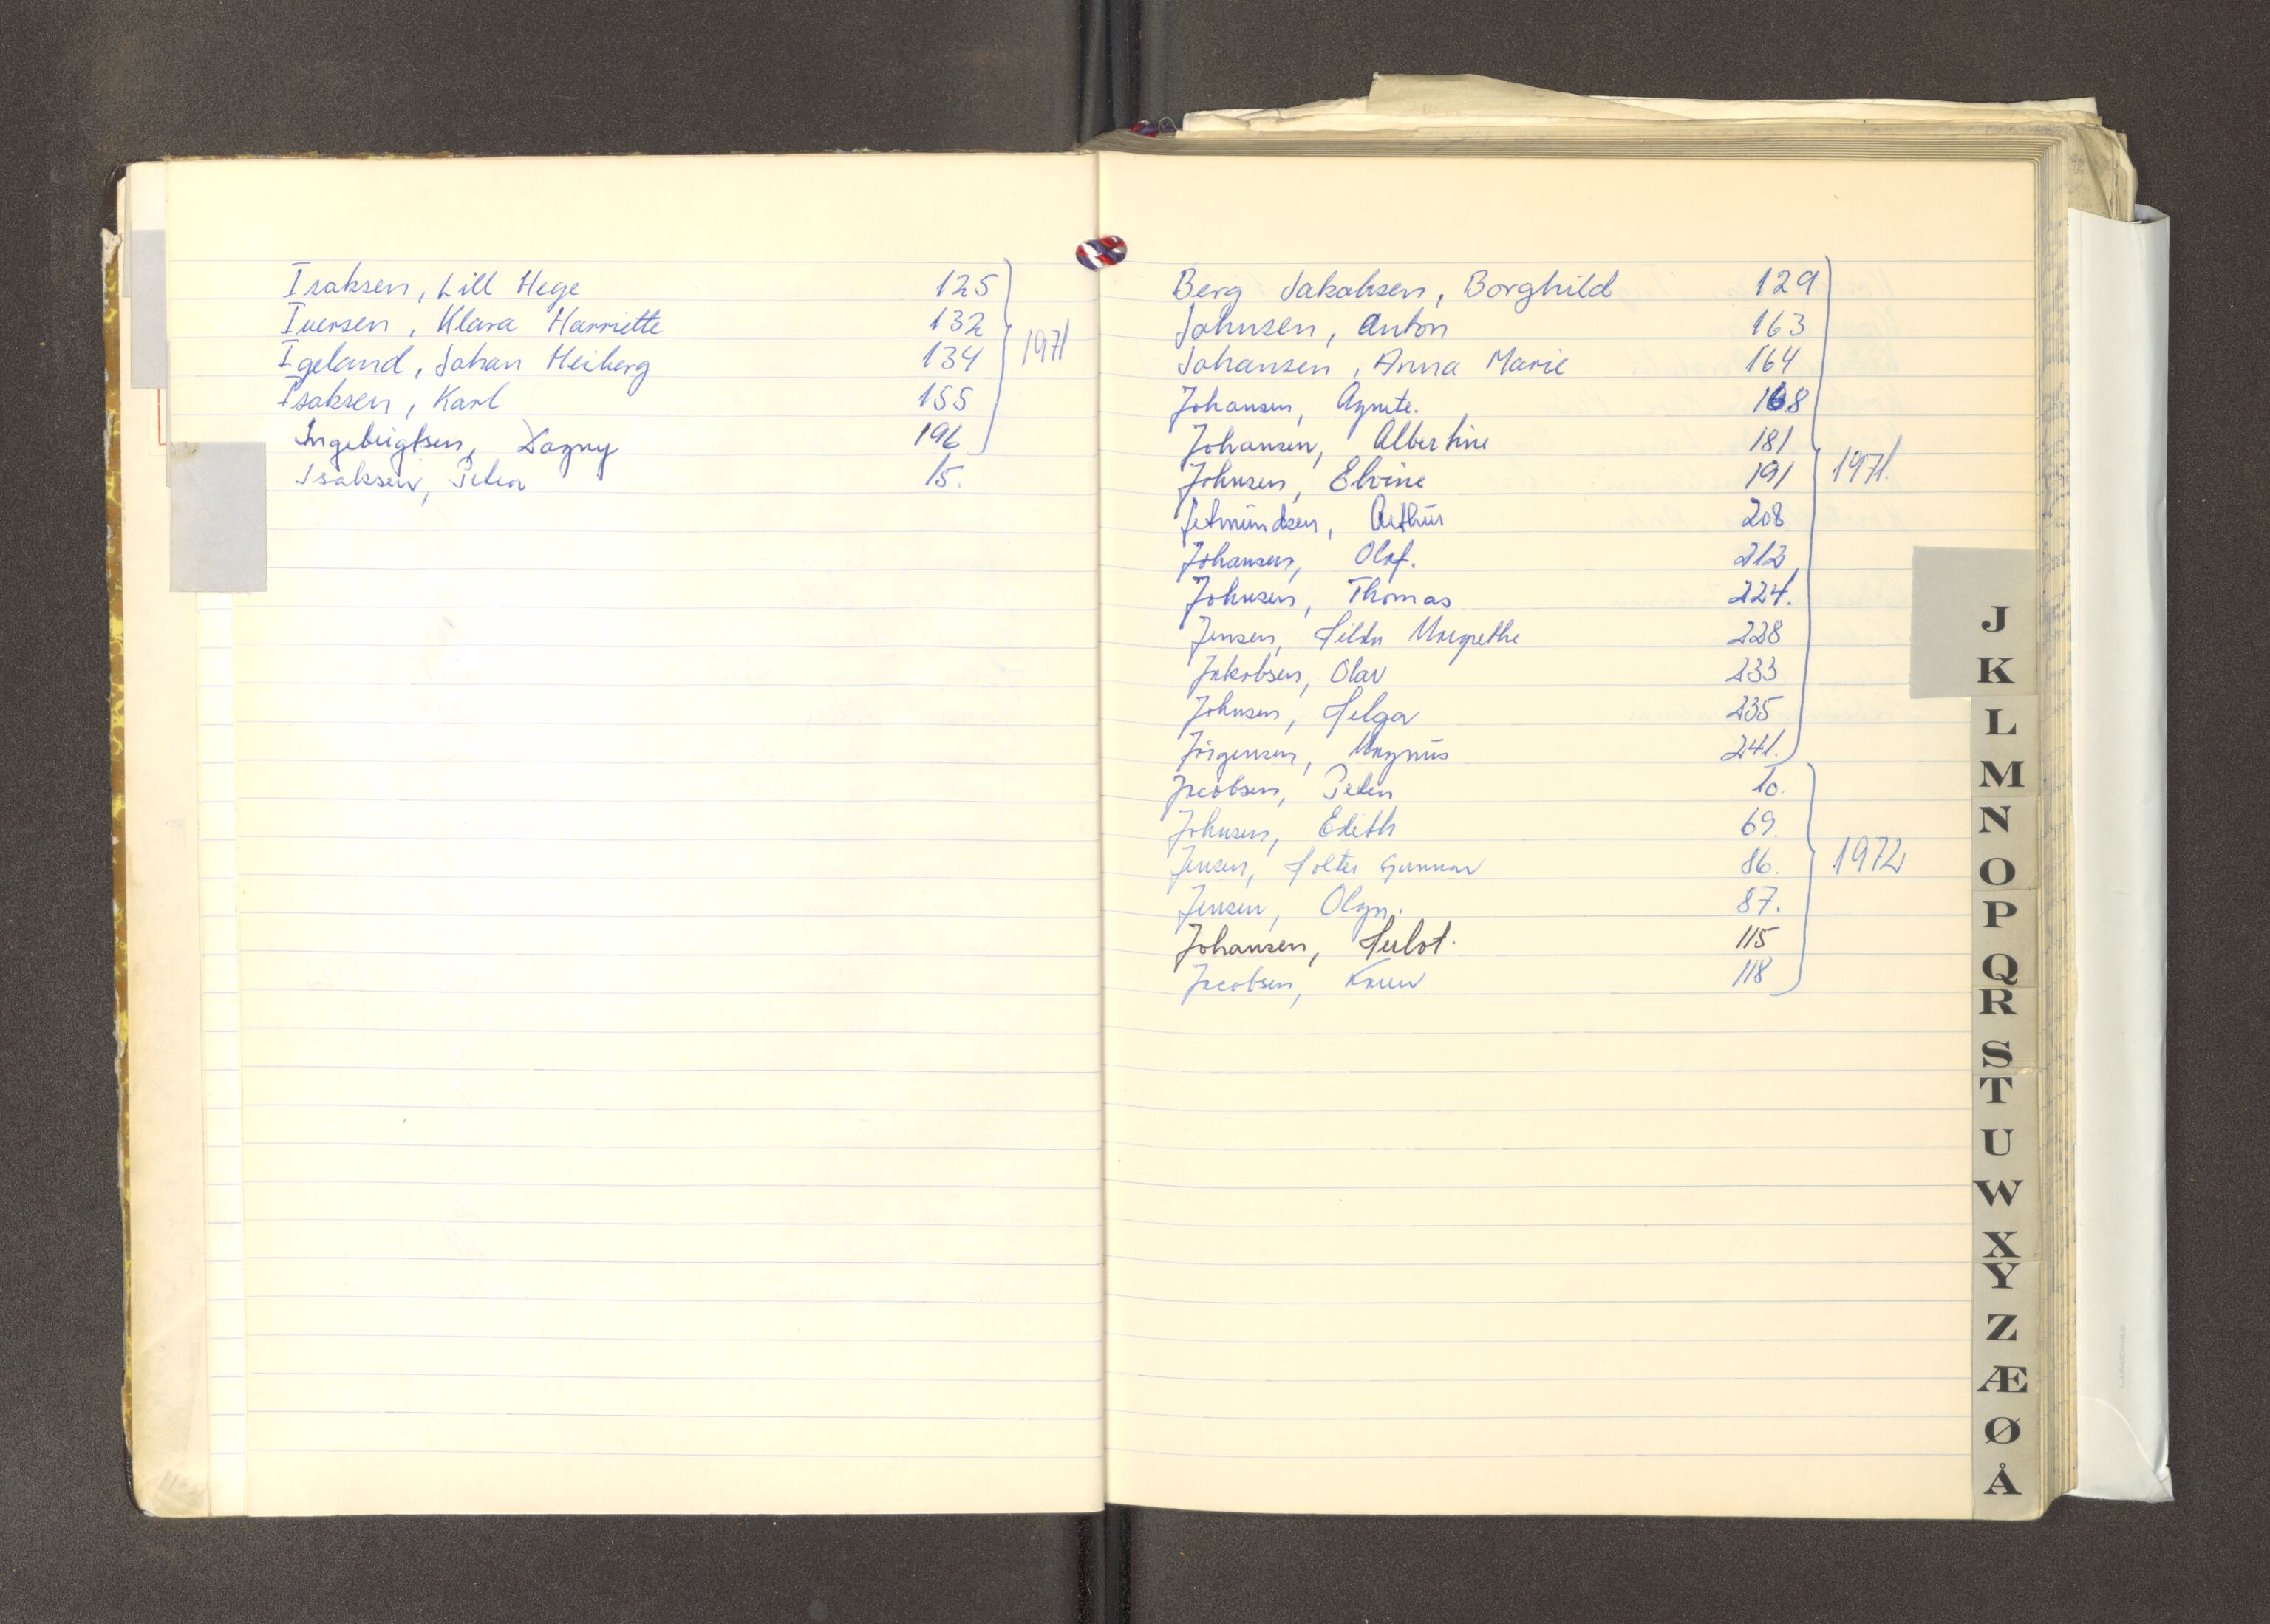 Isaksen, Lill Hege 125
Iversen, Klara Harriette 132
Igeland, Johan Heiberg 134
Isaksen, Karl 155
Ingebrigtsen, Dagny 196
1971
Isaksen, Peter 15.
Berg Jakobsen, Borghild 129
Johnsen, Anton 163
Johansen, Anna Marie 164
Johansen, Agnete. 168
Johansen, Albertine 181
Johnsen, Elvine 191
Jetmundsen, Arthur 208
Johansen, Olaf. 212
Johnsen, Thomas 224.
Jensen, Hilda Margrethe 228
Jakobsen, Olav 233
Johnsen, Helga 235
Jørgensen, Magnus 241.
1971.
Jacobsen, Peter 10.
Johnsen, Edith 69.
Jensen, Holter Gunnar 86.
Jensen, Olga. 87.
Johansen, 115
Jacobsen, 118
1972
J
K
L
M
N
O
P
Q
R
S
T
U
W
X
Y
Z
Æ
Ø
Å